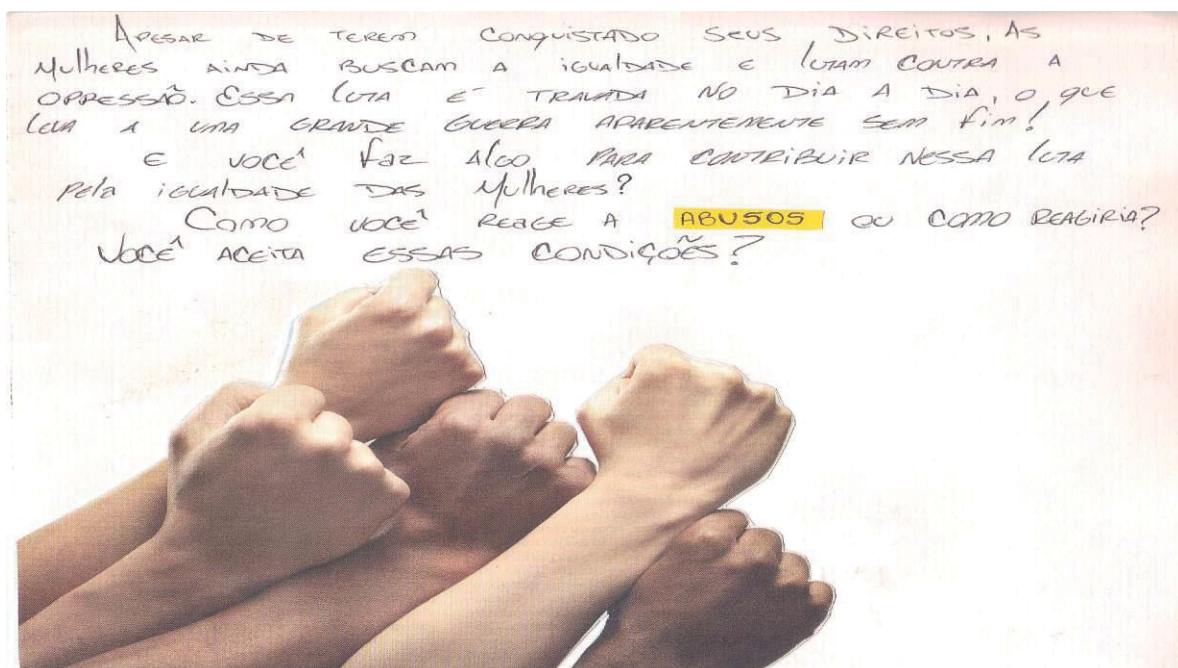 Apesar de terem conquistado seus direitos, as
mulheres ainda buscam a igualdade e lutam contra a
opressão. Essa luta é travada no dia a dia, o que
leva a uma grande guerra aparentemente sem fim!
E você faz algo para contribuir nessa luta
pela igualdade das mulheres?
Como você reage a ABUSOS ou como reagiria?
Você aceita essas condições?